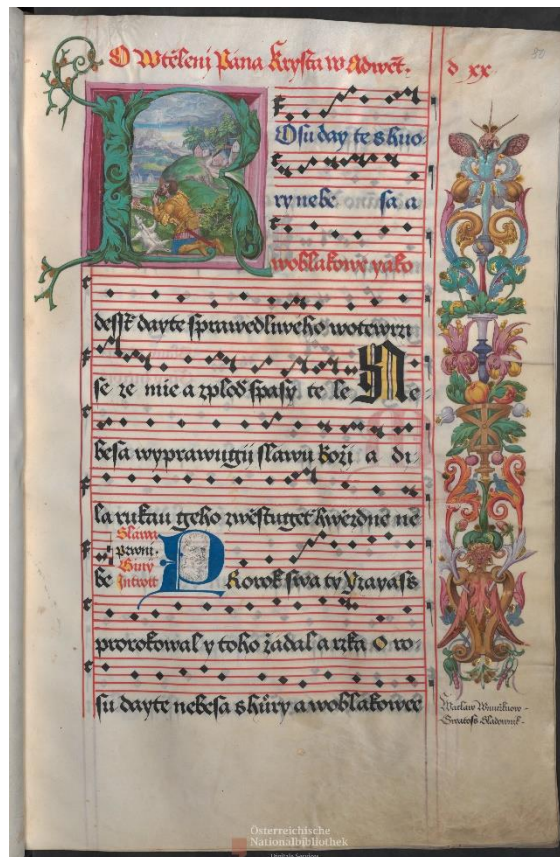 O Wtěleni Pana Krysta w Adwět.
d xx.
30
ROsu day te s huo-
ry nebe sa a
woblakowe yako
dessť dayte sprawedliweho wotewrzi
se ze mie a zplod spasy te le Ne-
besa wyprawugij slawu Boži a di-
la rukau geho zwěstuget hwězdne ne
be
Slawa
Prwni.
Introit
PRorok
prorokowal y toho žadal a rzka o ro-
su dayte nebesa s hůry a woblakowee
Österreichische
Nationalbibliothek